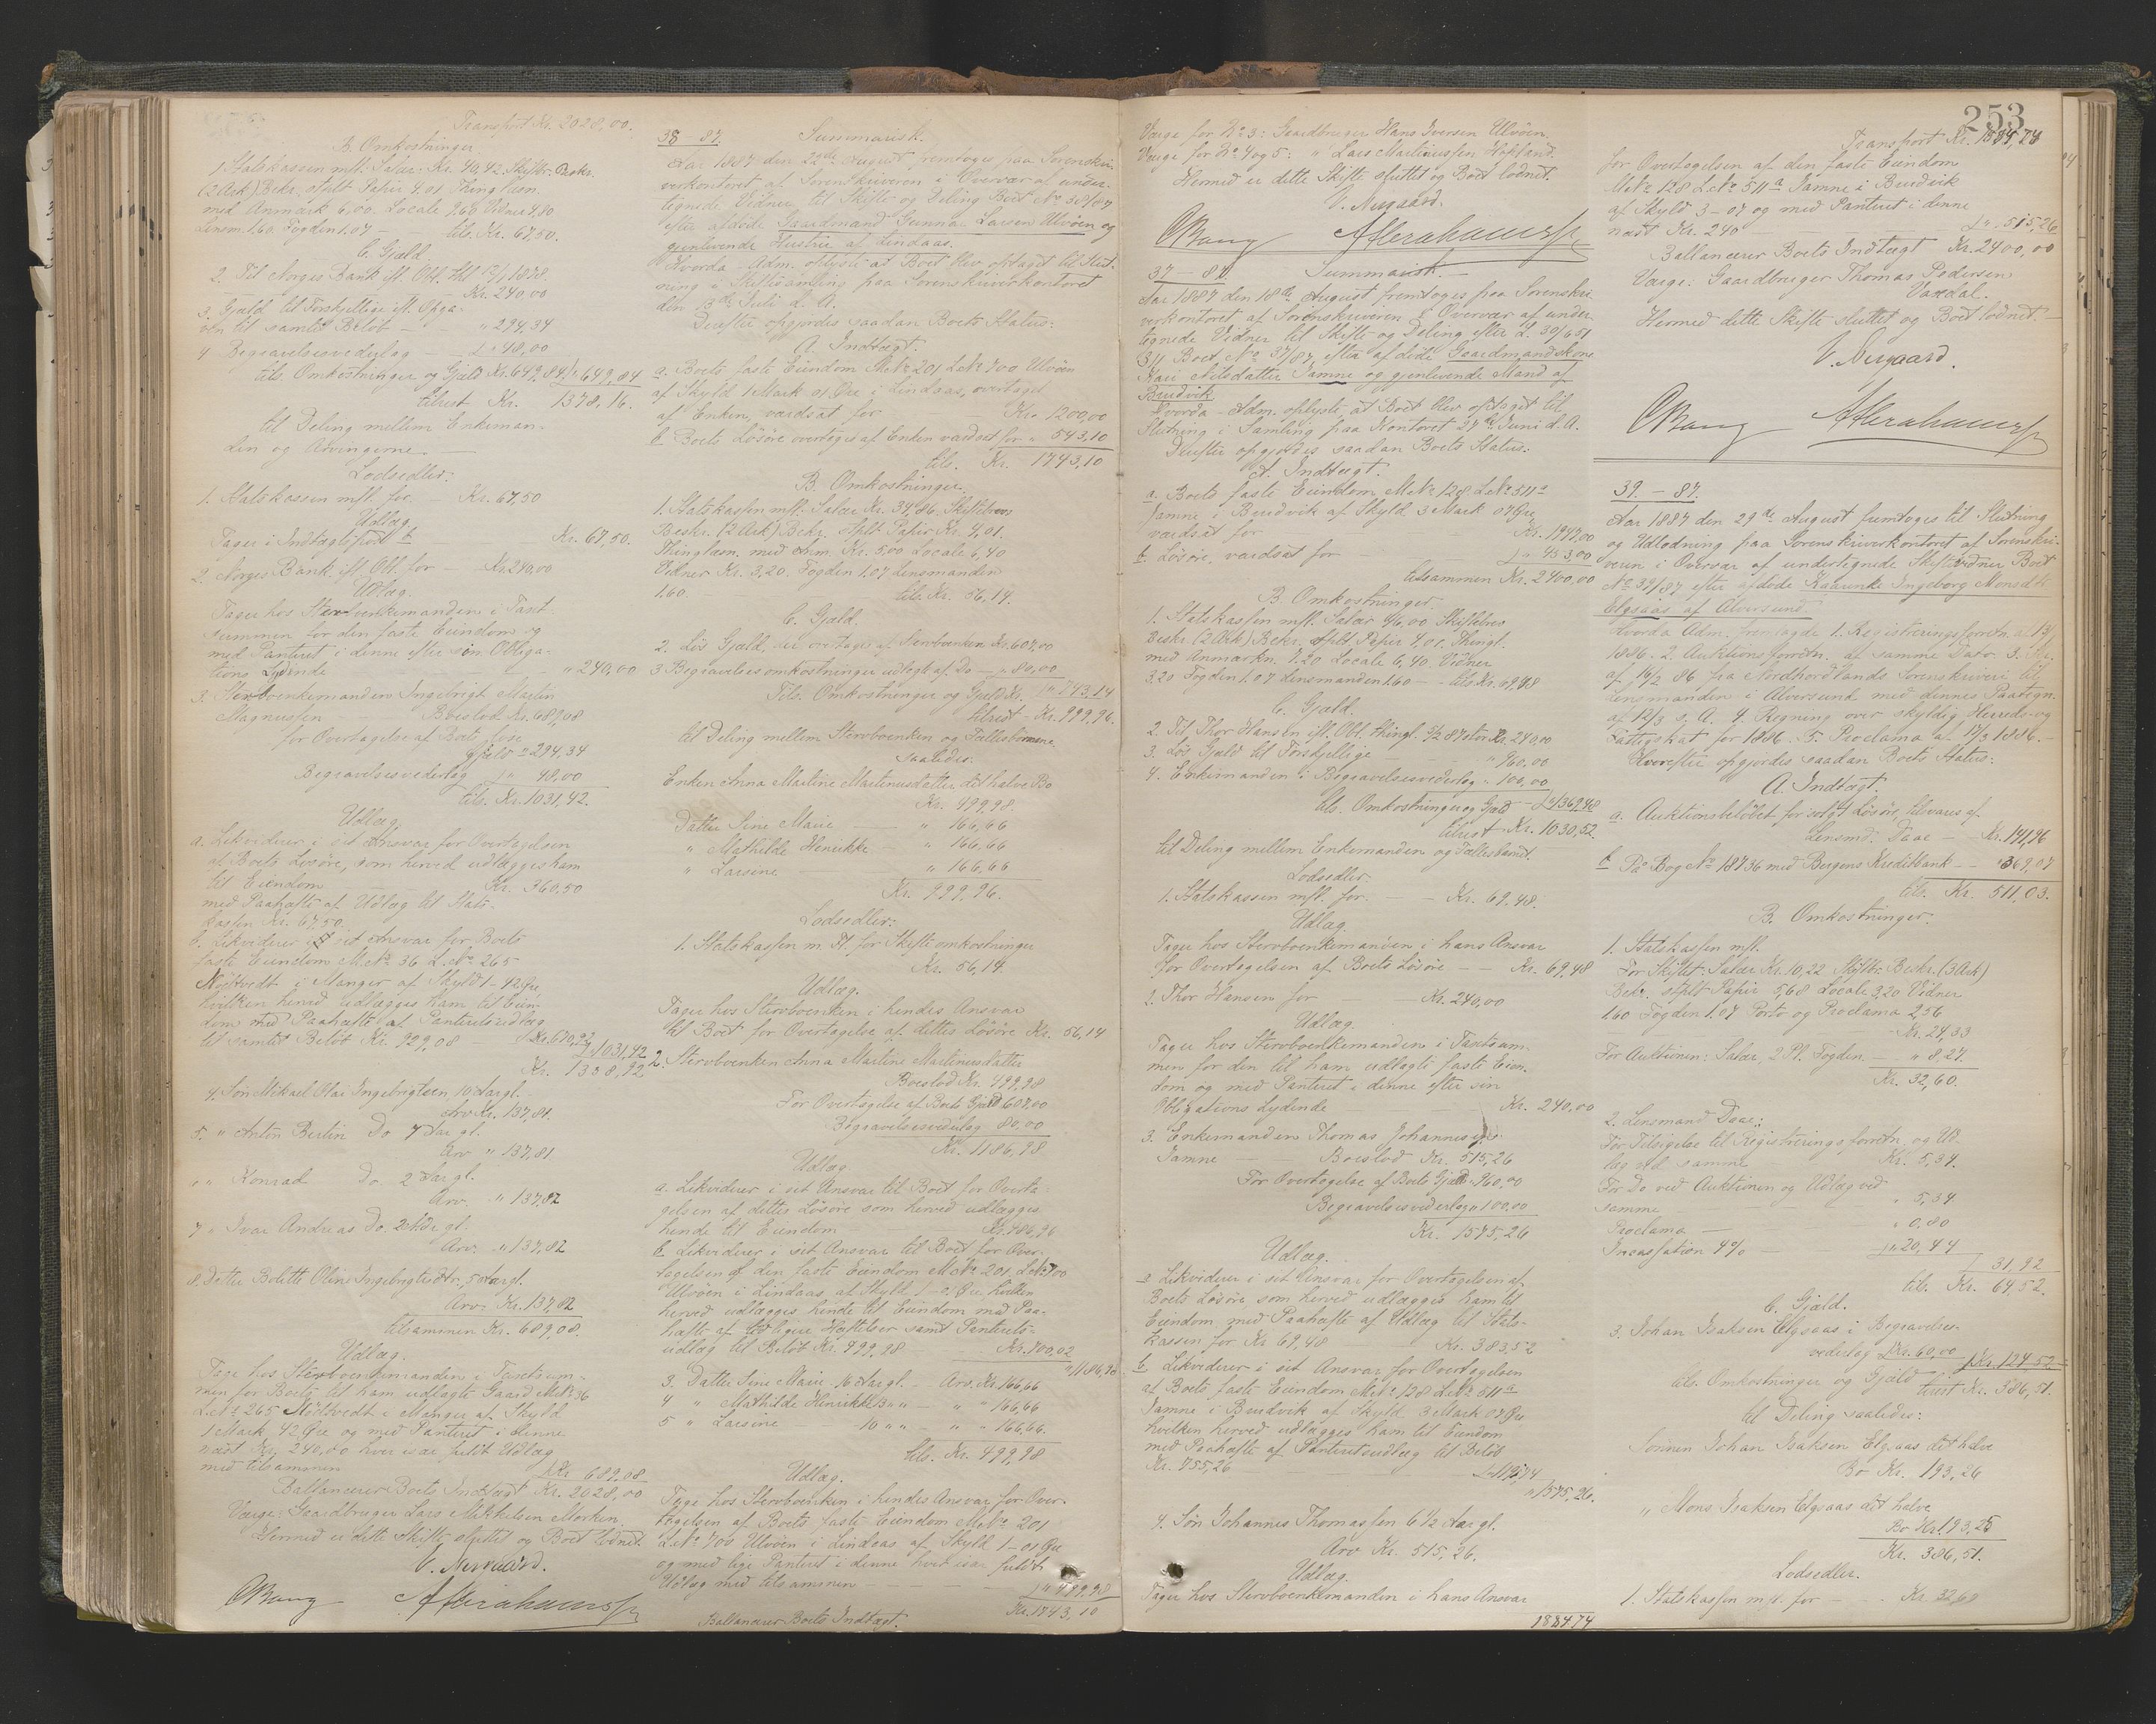 Transport Kr. 2028,00.
B. Omkostninger.
1. Statskassen mfl. Salær Kr. 40,42. Skiftbr. Beskr.
(2 Ark) Bekr. stplt Papir 4.01 Thinglæsn.
med Anmærk 6,00. Locale 9.60 Vidner 4,80
Lensm. 1.60. Fogden 1.07 — tils. Kr. 67,50.
C. Gjæld.
2. Til Norges Bank ifl. Obl. thl 1878
Kr. 240,00
3. Gjæld til Forskjellige ifl. Opga-
ven til samlet Beløb — " 294,34
4 Begravelsesvederlag — " 48,00
tils. Omkostninger og Gjæld Kr. 649,84 " 649,84
tilrest Kr. 1378,16.
til Deling mellem Enkeman-
den og Arvingerne. —
Lodsedler:
1. Statskassen mfl. for — Kr. 67,50
Udlæg.
Tager i Indtægtspost b — Kr. 67,50.
2. Norges Bank ifl. Obl. for — Kr. 240,00
Udlæg.
Tager hos Stervboenkemanden i Taxt-
summen for den faste Eiendom og
med Panteret i denne efter sin Obliga-
tions Lydende — " 240,00
3. Stervboenkemanden Ingebrigt Martin
Magnussen — Boeslod Kr. 689,08
for Overtagelse af Boets løse
Gjæld " 294,34
Begravelsesvederlag " 48,00
tils. Kr. 1031,42.
Udlæg.
a. Likviderer i sit Ansvar for Overtagelsen
af Boets Løsøre, som herved udlægges ham
til Eiendom — Kr. 360.50
med Paahæfte af Udlæg til Stats-
kassen Kr. 67,50.
b. Likviderer i sit Ansvar for Boets
faste Eiendom M.No 36 L.No 265
Nøttvedt i Manger af Skyld 1-42 Øre
hvilken herved udlægges ham til Eien-
dom med Paahæfte af Panteretsudlæg
til samlet Beløb Kr. 929,08 — Kr. 670,92
" 1031,42
Kr. 1338,92
4. Søn Mikael Olai Ingebrigtsen, 10 Aar gl.
Arv Kr. 137,81.
5. " Anton Berlin Do 7 Aar gl.
Arv " 137,81
" Konrad Do. 2 Aar gl.
Arv. " 137,82
7 " Ivar Andreas Do. 2 Mdr gl.
Arv. " 137,82
8. Datter Bolette Oline Ingebrigtsdtr, 5 Aar gl.
Arv. Kr. 137,82
tilsammen Kr. 689,08.
Udlæg.
Tage hos Stervboenkemanden i Taxtsum-
men for Boets til ham udlagte Gaard M.No 36
L.No 265 Nøttvedt i Manger af Skyld
1 Mark 42 Øre og med Panteret i denne
næst Kr. 240,00 hver især fuldt Udlæg
med tilsammen Kr. 689,08.
Ballancerer Boets Indtægt Kr. 2028,00
Værge: Gaardbruger Lars Mikkelsen Morken.
Hermed er dette Skifte sluttet og Boet lodnet.
V. Nergaard.
OBang AAbrahamsen
38 — 87. Summarisk.
Aar 1887 den 22de August fremtoges paa Sorenskri-
verkontoret af Sorenskriveren i Overvær af under-
tegnede Vidner til Skifte og Deling Boet No 38/87
efter afdøde Gaardmand Gunnar Larsen Ulvøen og
gjenlevende Hustru af Lindaas.
Hvorda Adm. oplyste at Boet blev optaget til Slut-
ning i Skiftesamling paa Sorenskriverkontoret
den 13de Juli d. A.
Derefter opgjordes saadan Boets Status:
A. Indtægt.
a. Boets faste Eiendom M.No 201 L.No 700 Ulvøen
af Skyld 1 Mark 01 Øre i Lindaas, overtaget
af Enken, værdsat for Kr. 1200,00
b. Boets Løsøre overtages af Enken værdsat for " 543,10
tils. Kr. 1743,10
B. Omkostninger.
1. Statskassen mfl. Salær Kr. 34,86. Skiftebrevs
Beskr. (2 Ark) Bekr. stplt Papir Kr. 4,01.
Thinglæsn. med Anm. Kr. 5,00 Locale 6,40
Vidner Kr. 3,20. Fogden 1.07 Lensmanden
1.60. — tils. Kr. 56,14.
C. Gjæld.
2. Løs Gjæld, der overtages af Stervboenken Kr. 607,00
3 Begravelsesomkostninger udlagt af Do — " 80,00
Tils. Omkostninger og Gjæld Kr. " 743,14
tilrest — Kr. 999,96.
til Deling mellem Stervboenken og Fællesbørnene
saaledes:
Enken Anna Martine Martinusdatter det halve Bo
Kr. 499,98
Datter Sine Marie — " 166,66
" Mathilde Henrikke — " 166,66
" Larsine — " 166,66
Kr. 999,96.
Lodsedler:
1. Statskassen m. Fl. for Skifteomkostninger
Kr. 56,14
Udlæg.
Tager hos Stervboenken i hendes Ansvar
til Boet for Overtagelse af dettes Løsøre Kr. 56,14
2. Stervboenken Anna Martine Martinusdatter
Boeslod Kr. 499,98
For Overtagelse af Boets Gjæld 607,00
Begravelsesvederlag 80,00
Kr. 1186,98.
Udlæg.
a. Likviderer i sit Ansvar til Boet for Overta-
gelsen af dettes Løsøre som herved udlægges
hende til Eiendom — Kr. 486,96
b. Likviderer i sit Ansvar til Boet for Over-
tagelsen af den faste Eiendom M.No 201, L.No 700
Ulvøen i Lindaas af Skyld 1-01 Øre hvilken
herved udlægges hende til Eiendom med Paa-
hæfte af tidligere Heftelser samt Panterets-
udlæg til Beløb Kr. 499,98 — Kr. 700,02
" 1186,98
3. Datter Sine Marie 16 Aar gl. — Arv. Kr. 166,66
4 " Mathilde Henrikke 13 " " — " " 166,66
5 " Larsine — 10 " " — " " 166,66.
tils. Kr. 499,98
Udlæg.
Tage hos Stervboenken i hendes Ansvar for Over-
tagelsen af Boets faste Eiendom M.No 201
L.No 700 Ulvøen i Lindaas af Skyld 1-01 Øre
og med lige Panteret i denne hver især fuldt
Udlæg med tilsammen — " 499,98
Ballancerer Boets Indtægt. Kr. 1743,10
253
Værge for No 3: Gaardbruger Hans Iversen Ulvøen.
Værge for No 4 og 5: " Lars Martinussen Hopland.
Hermed er dette Skifte sluttet og Boet lodnet.
V. Nergaard.
OBang AAbrahamsen
37 — 87. Summarisk. —
Aar 1887 den 18de August fremtoges paa Sorenskri-
verkontoret af Sorenskriveren i Overvær af under-
tegnede Vidner til Skifte og Deling efter L. 30/6 51
§ 11 Boet No 37/87, efter afdøde Gaardmandskone
Kari Nilsdatter Jamne og gjenlevende Mand af
Bruvik
Hvorda Adm. oplyste at Boet blev optaget til
Slutning i Samling paa Kontoret 27de Juni d. A.
Derefter opgjordes saadan Boets Status:
A. Indtægt.
a. Boets faste Eiendom M.No 128 L.No 511a
Jamne i Brudvik af Skyld 3 Mark 07 Øre
værdsat for — Kr. 1947,00
b. Løsøre, værdsat for — " 453,00
tilsammen Kr. 2400,00
B. Omkostninger.
1. Statskassen mfl. Salær 46,00 Skiftebrev
Beskr. (2 Ark) Bekr. stplt Papir 4,01. Thingl.
med Anmærkn. 7.20 Locale 6,40. Vidner
3.20 Fogden 1.07 Lensmanden 1.60 — tils. Kr. 69,48
C. Gjæld.
2. Til Thor Hansen ifl. Obl. thingl. 9/2 87 stor Kr. 240,00
3. Løs Gjæld til Forskjellige — " 960,00
4. Enkemanden i Begravelsesvederlag " 100,00
tils. Omkostninger og Gjæld — " 1369,48
tilrest Kr. 1030,52.
til Deling mellem Enkemanden og Fællesbarnet.
Lodsedler.
1. Statskassen mfl. for. — Kr. 69.48.
Udlæg.
Tager hos Stervboenkemanden i hans Ansvar
for Overtagelsen af Boets Løsøre — Kr. 69,48
2. Thor Hansen for — Kr. 240,00
Udlæg.
Tager hos Stervboenkemanden i Taxtsum-
men for den til ham udlagte faste Eien-
dom og med Panteret i denne efter sin
Obligations Lydende — Kr. 240,00
3. Enkemanden Thomas Johannessen
Jamne — Boeslod Kr. 515,26
For Overtagelse af Boets Gjæld " 960,00
Begravelsesvederlag " 100,00
Kr. 1575,26
Udlæg.
a Likviderer i sit Ansvar for Overtagelsen af
Boets Løsøre som herved udlægges ham til
Eiendom med Paahæfte af Udlæg til Stats-
kassen for Kr 69,48 — Kr. 383,52
b. Likviderer i sit Ansvar for Overtagelsen
af Boets faste Eiendom M.No 128 L.No 511a
Jamne i Brudvik af Skyld 3 Mark 07 Øre
hvilken herved udlægges ham til Eiendom
med Paahæfte af Panteretsudlæg til Beløb
Kr. 755,26 — " 1191,74
" 1575,26.
4. Søn Johannes Thomassen 6 1/2 Aar gl.
Arv Kr. 515,26.
Udlæg.
Tager hos Stervboenkemanden i hans Ansvar
1884.74
Transport Kr. 1884,74
for Overtagelsen af den faste Eiendom
M.No 128 L.No 511a Jamne i Brudvik
af Skyld 3-07 og med Panteret i denne
næst Kr. 240 — " 515,26
Ballancerer Boets Indtægt Kr. 2400,00
Værge: Gaardbruger Thomas Pedersen
Vaxdal.
Hermed dette Skifte sluttet og Boet lodnet.
V. Nergaard.
OBang AAbrahamsen
39. — 87.
Aar 1887 den 29de August fremtoges til Slutning
og Udlodning paa Sorenskriverkontoret af Sorenskri-
veren i Overvær af undertegnede Skiftevidner Boet
No 39/87 efter afdøde Kaarenke Ingeborg Monsdtr
Elgsaas af Alversund
Hvorda Adm. fremlagde 1. Registreringsforretn. af 13/
1886. 2. Auktionsforretn. af samme Dato. 3.
af 16/2 86 fra Nordhordlands Sorenskriveri til
Lensmanden i Alversund med dennes Paategn.
af 12/3 s. A. 4. Regning over skyldig Herreds- og
Fattigskat for 1886. 5. Proclama af 17/3 1886. —
Hvorefter opgjordes saadan Boets Status:
A. Indtægt.
a. Auktionsbeløbet for solgt Løsøre, tilsvares af
Lensmd. Daae — Kr. 141,96
b Paa Bog No 18736 med Bergens Kreditbank — " 369,07
tils. Kr. 511,03.
B. Omkostninger:
1. Statskassen mfl.
For Skiftet: Salær Kr. 10,22 Skiftbr. Beskr. (3 Ark)
Bekr. stplt Papir 5,68 Locale 3,20 Vidner
1.60 Fogden 1.07 Porto og Proclama 2,56
Kr. 24,33
For Auktionen: Salær, 2 Pt. Fogden — " 8,27.
Kr. 32,60.
2. Lensmand Daae:
For Tilsigelse til Registreringsforretn. og Ud-
læg ved samme — Kr. 5,34.
For Do ved Auktionen og Udlæg ved
samme — " 5,34
Proclama — " 0.80
Incassation 4% — " 20,44
31,92
tils. Kr. 64,52.
C. Gjæld.
3. Johan Isaksen Elgsaas i Begravelses-
vederlag Kr. 60,00 Kr. 124,52
tils. Omkostninger og Gjæld tilrest Kr. 386,51.
til Deling saaledes:
Sønnen Johan Isaksen Elgsaas det halve
Bo Kr. 193,26
" Mons Isaksen Elgsaas det halve
Bo Kr. 193,25
Kr. 386,51.
Lodsedler.
1. Statskassen mfl. for — Kr. 32,60